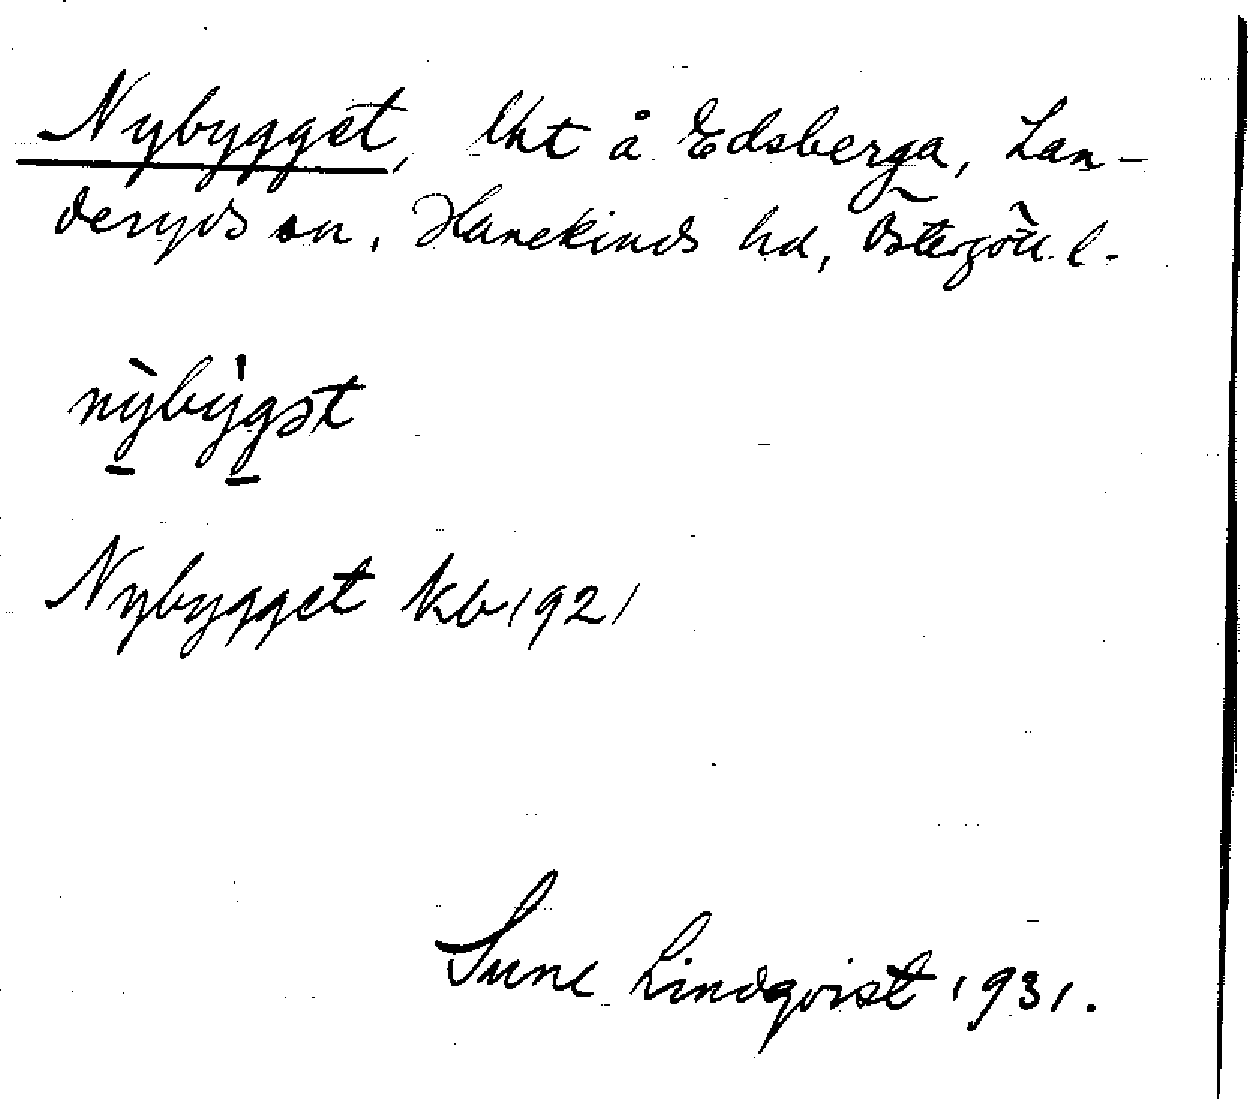 Nybygget, lht å Edsberga, Lan-
deryds sn, Hanekinds hd, Östergötl. l.
nỳbýgət
Nybygget kb 1921
Sune Lindqvist 1931.